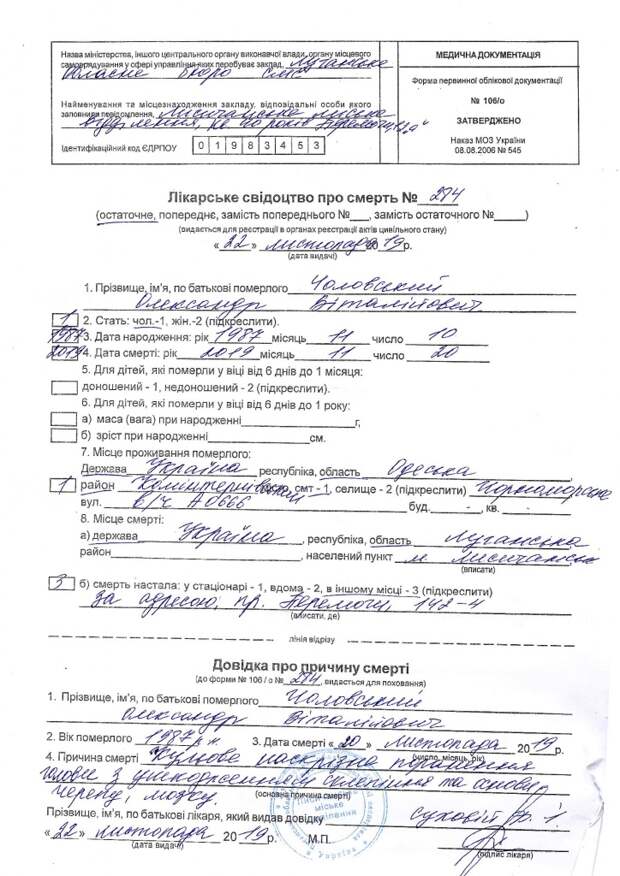 Назва міністерства, іншого центрального органу виконавчої влади, органу місцевого
самоврядування у сфері управління яких перебуває заклад, Луганське
обласне бюро СМЕ
Найменування та місцезнаходження закладу, відповідальні особи якого
заповнили повідомлення, Лисичанське міське
відділення, кв. 40 років Перемоги, 12 "а"
Ідентифікаційний код ЄДРПОУ 0 1 9 8 3 4 5 3
МЕДИЧНА ДОКУМЕНТАЦІЯ
Форма первинної облікової документації
№ 106/о
ЗАТВЕРДЖЕНО
Наказ МОЗ України
08.08.2006 № 545
Лікарське свідоцтво про смерть № 284
(остаточне, попереднє, замість попереднього №___, замість остаточного №_____)
(видається для реєстрації в органах реєстрації актів цивільного стану)
« 22 » листопада 2019 р.
(дата видачі)
1. Прізвище, ім'я, по батькові померлого Чоловський
Олександр Віталійович
1 2. Стать: чол.-1, жін.-2 (підкреслити).
1987 3. Дата народження: рік 1987 місяць 11 число 10
2019 4. Дата смерті: рік 2019 місяць 11 число 20
5. Для дітей, які померли у віці від 6 днів до 1 місяця:
доношений - 1, недоношений - 2 (підкреслити).
6. Для дітей, які померли у віці від 6 днів до 1 року:
а) маса (вага) при народженні г,
б) зріст при народженні см.
7. Місце проживання померлого:
Держава Україна республіка, область Одеська,
1 район Комінтернівський місто, смт - 1, селище - 2 (підкреслити) Чорноморське
вул. в/ч А0666 буд. - , кв.
8. Місце смерті:
а) держава Україна, республіка, область Луганська
район , населений пункт м. Лисичанськ
(вписати)
3 б) смерть настала: у стаціонарі - 1, вдома - 2, в іншому місці - 3 (підкреслити)
за адресою: пр. Перемоги, 148-4
(вписати, де)
лінія відрізу
Довідка про причину смерті
(до форми № 106 / о № 284, видається для поховання)
1. Прізвище, ім'я, по батькові померлого Чоловський
Олександр Віталійович
2. Вік померлого 1987 р.н. 3. Дата смерті « 20 » листопада 2019 р.
(число, місяць, рік)
4. Причина смерті Кульове наскрізне поранення
голови з ушкодженням склепіння та основи
черепу, мозку.
(основна причина смерті)
Прізвище, ім'я, по батькові лікаря, який видав довідку Суховій
« 22 » листопада 2019 р. М.П.
(дата видачі) (підпис лікаря)